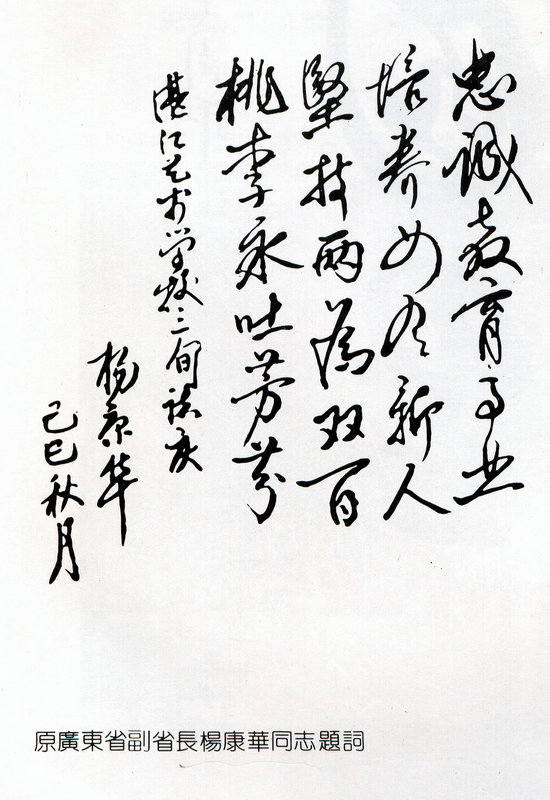 忠诚教育事业
培养新人
堅持兩為双百
桃李永吐芳芬
湛江艺术学校三旬誌庆
杨康华
己巳秋月
原廣東省副省長楊康華同志題詞